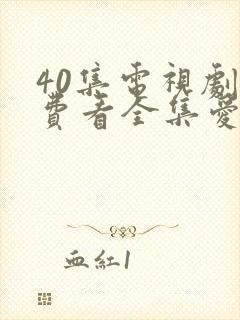 40集電視劇
費看全集愛
血紅1